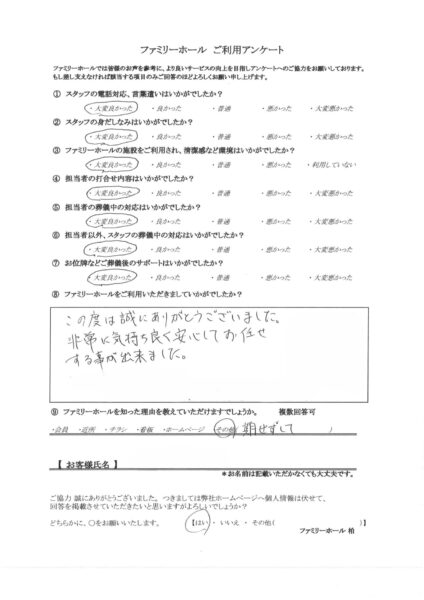 ファミリーホール ご利用アンケート
ファミリーホールでは皆様のお声を参考に、より良いサービスの向上を目指しアンケートへのご協力をお願いしております。
もし差し支えなければ該当する項目のみご回答のほどよろしくお願い申し上げます。
① スタッフの電話対応、言葉遣いはいかがでしたか?
・大変良かった ・良かった ・普通 ・悪かった ・大変悪かった
② スタッフの身だしなみはいかがでしたか?
・大変良かった ・良かった ・普通 ・悪かった ・大変悪かった
③ ファミリーホールの施設をご利用され、清潔感など環境はいかがでしたか?
・大変良かった ・良かった ・普通 ・悪かった ・利用していない
④ 担当者の打合せ内容はいかがでしたか?
・大変良かった ・良かった ・普通 ・悪かった ・大変悪かった
⑤ 担当者の葬儀中の対応はいかがでしたか?
・大変良かった ・良かった ・普通 ・悪かった ・大変悪かった
⑥ 担当者以外、スタッフの葬儀中の対応はいかがでしたか?
・大変良かった ・良かった ・普通 ・悪かった ・大変悪かった
⑦ お位牌などご葬儀後のサポートはいかがでしたか?
・大変良かった ・良かった ・普通 ・悪かった ・大変悪かった
⑧ ファミリーホールをご利用いただきましていかがでしたか?
この度は誠にありがとうございました。
非常に気持ち良く安心してお任せ
する事が出来ました。
⑨ ファミリーホールを知った理由を教えていただけますでしょうか。 複数回答可
・会員 ・近所 ・チラシ ・看板 ・ホームページ ・その他( 期せずして )
【 お客様氏名 】
*お名前は記載いただかなくても大丈夫です。
ご協力 誠にありがとうございました。つきましては弊社ホームページへ個人情報は伏せて、
回答を掲載させていただきたいと思いますがよろしいでしょうか?
どちらかに、○をお願いいたします。 【はい ・ いいえ ・ その他( )】
ファミリーホール 柏